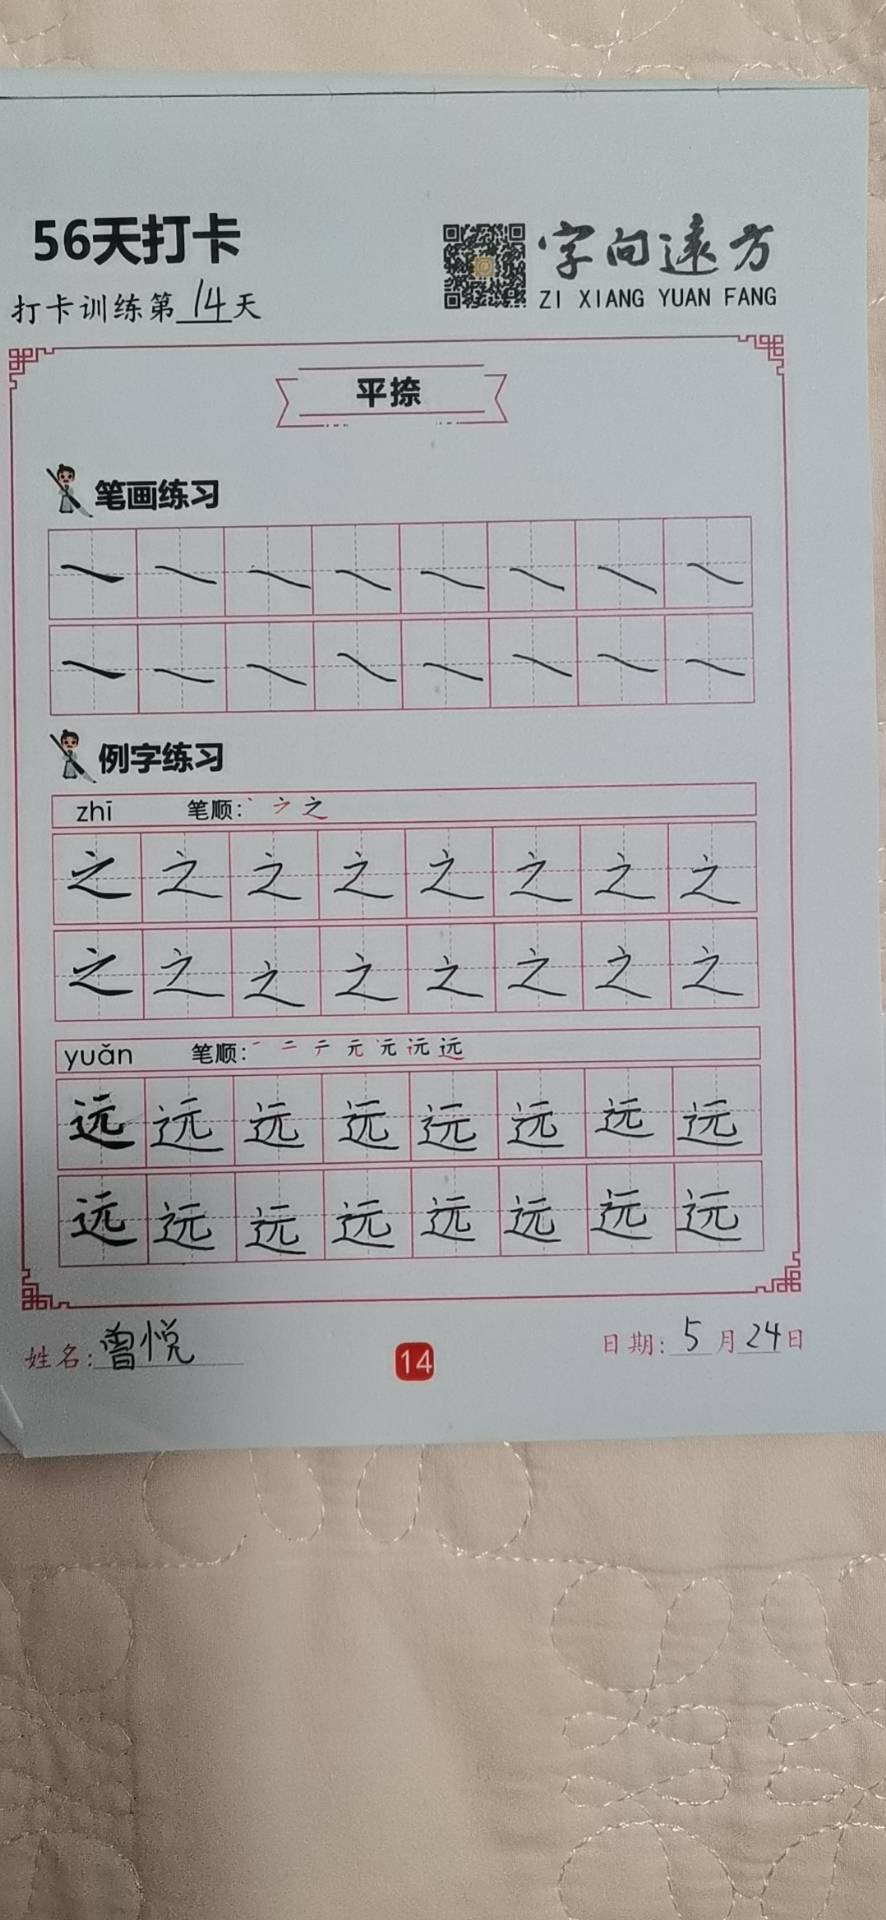 56天打卡
字向遠方
ZI XIANG YUAN FANG
打卡训练第14天
平捺
笔画练习
例字练习
zhī 笔顺: 之
之之之之之之之之
之之之之之之之之
yuǎn 笔顺: 一 二 テ 元 元 沅 远
远远远远远远远远
远远远远远远远远
姓名:曾悦
14
日期:5月24日